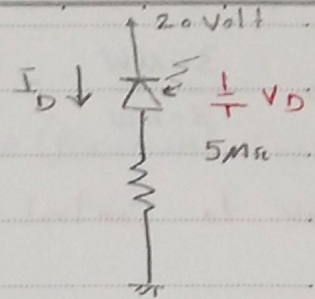 20 Volt
I_D ↓
V_D
5MΩ